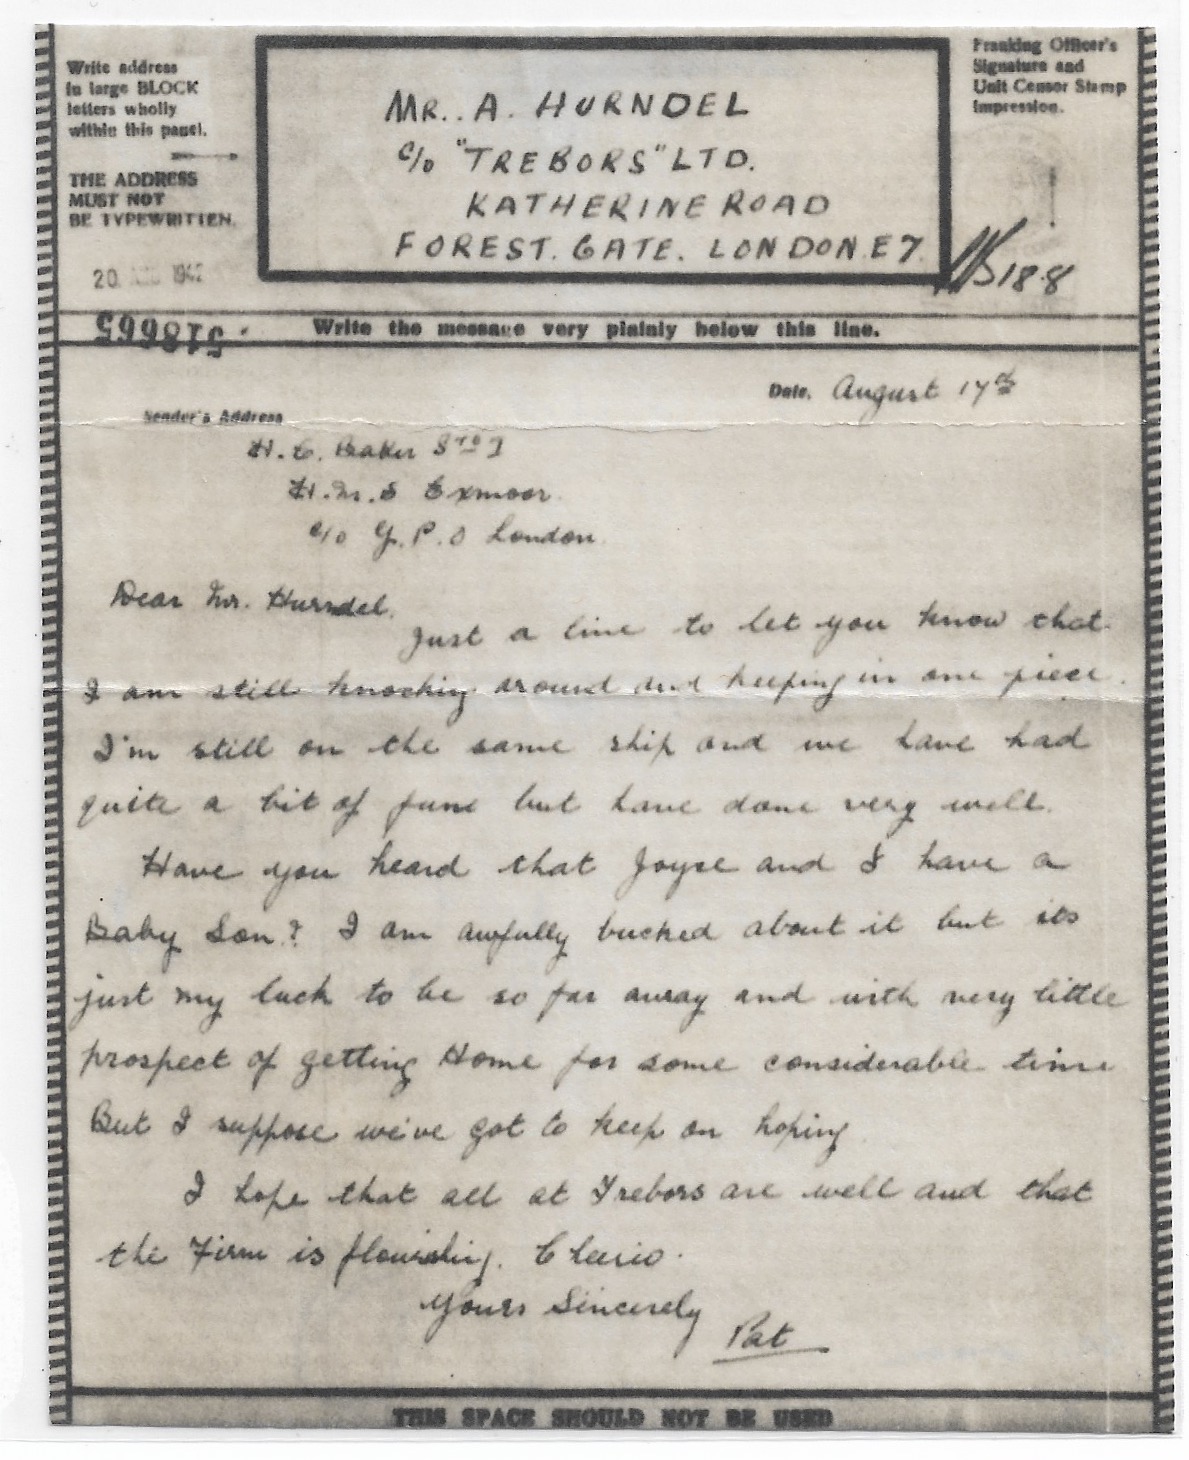 Write address
in large BLOCK
letters wholly
within this panel.
THE ADDRESS
MUST NOT
BE TYPEWRITTEN.
MR. A. HURNDEL
c/o "TREBORS" LTD.
KATHERINE ROAD
FOREST. GATE. LONDON. E7
Franking Officer's
Signature and
Unit Censor Stamp
Impression.
18.8
20 1942
518665
Write the message very plainly below this line.
Date. August 17th
Sender's Address
H. C. Baker STO I
H.M.S Exmoor
c/o G.P.O London
Dear Mr. Hurndel.
Just a line to let you know that
I am still knocking around and keeping in one piece.
I'm still on the same ship and we have had
quite a bit of fune but have done very well.
Have you heard that Joyce and I have a
Baby Son? I am awfully bucked about it but its
just my luck to be so far away and with very little
prospect of getting Home for some considerable time
But I suppose we've got to keep on hoping
I hope that all at Trebors are well and that
the Firm is flourishing. Cheerio.
Yours Sincerely
Pat
THIS SPACE SHOULD NOT BE USED